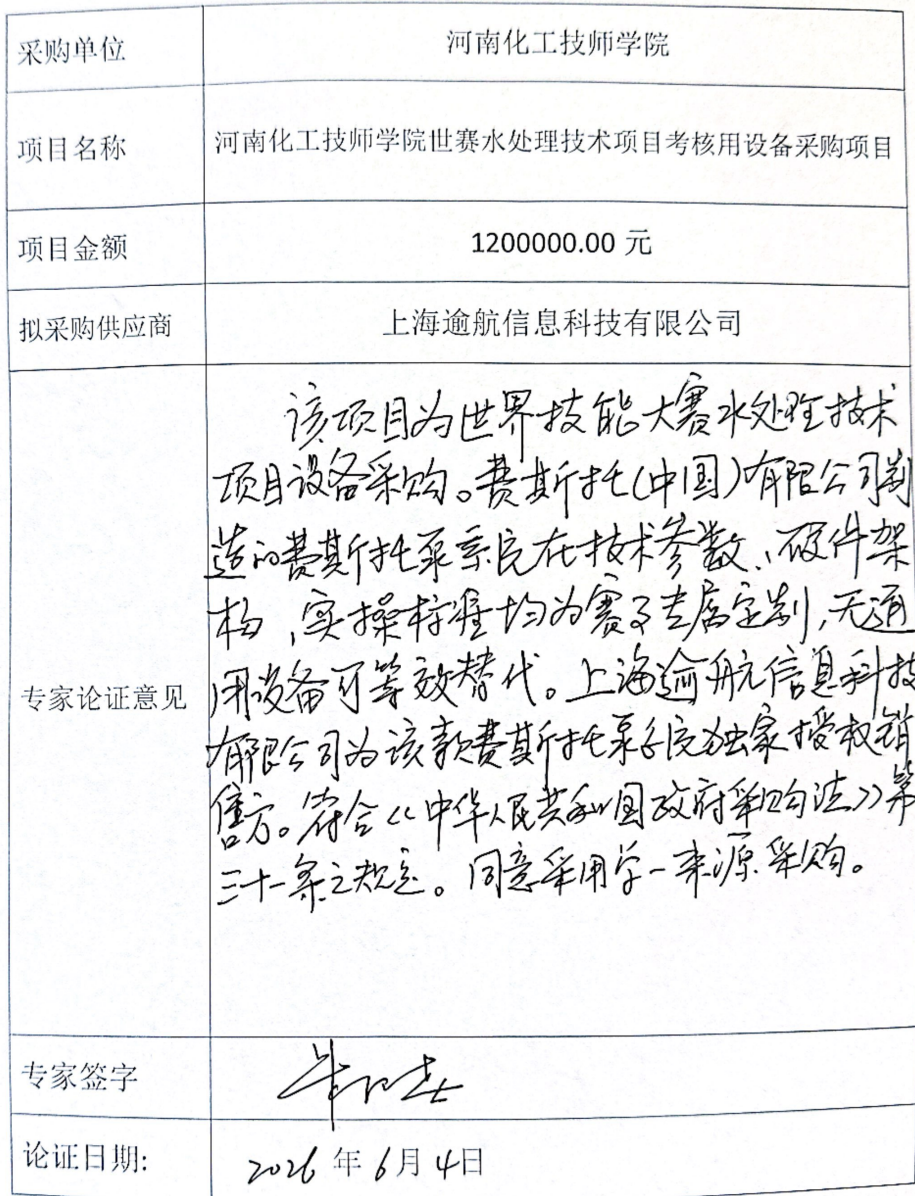 采购单位
河南化工技师学院
项目名称
河南化工技师学院世赛水处理技术项目考核用设备采购项目
项目金额
1200000.00 元
拟采购供应商
上海逾航信息科技有限公司
专家论证意见
该项目为世界技能大赛水处理技术
项目设备采购。费斯托(中国)有限公司制
造的费斯托泵系统在技术参数、硬件架
构,实操标准均为赛事专属定制,无通
用设备可等效替代。上海逾航信息科技
有限公司为该款费斯托泵系统独家授权销
售方。符合《中华人民共和国政府采购法》第
三十一条之规定。同意采用单一来源采购。
专家签字
论证日期:
2026 年 6 月 4 日